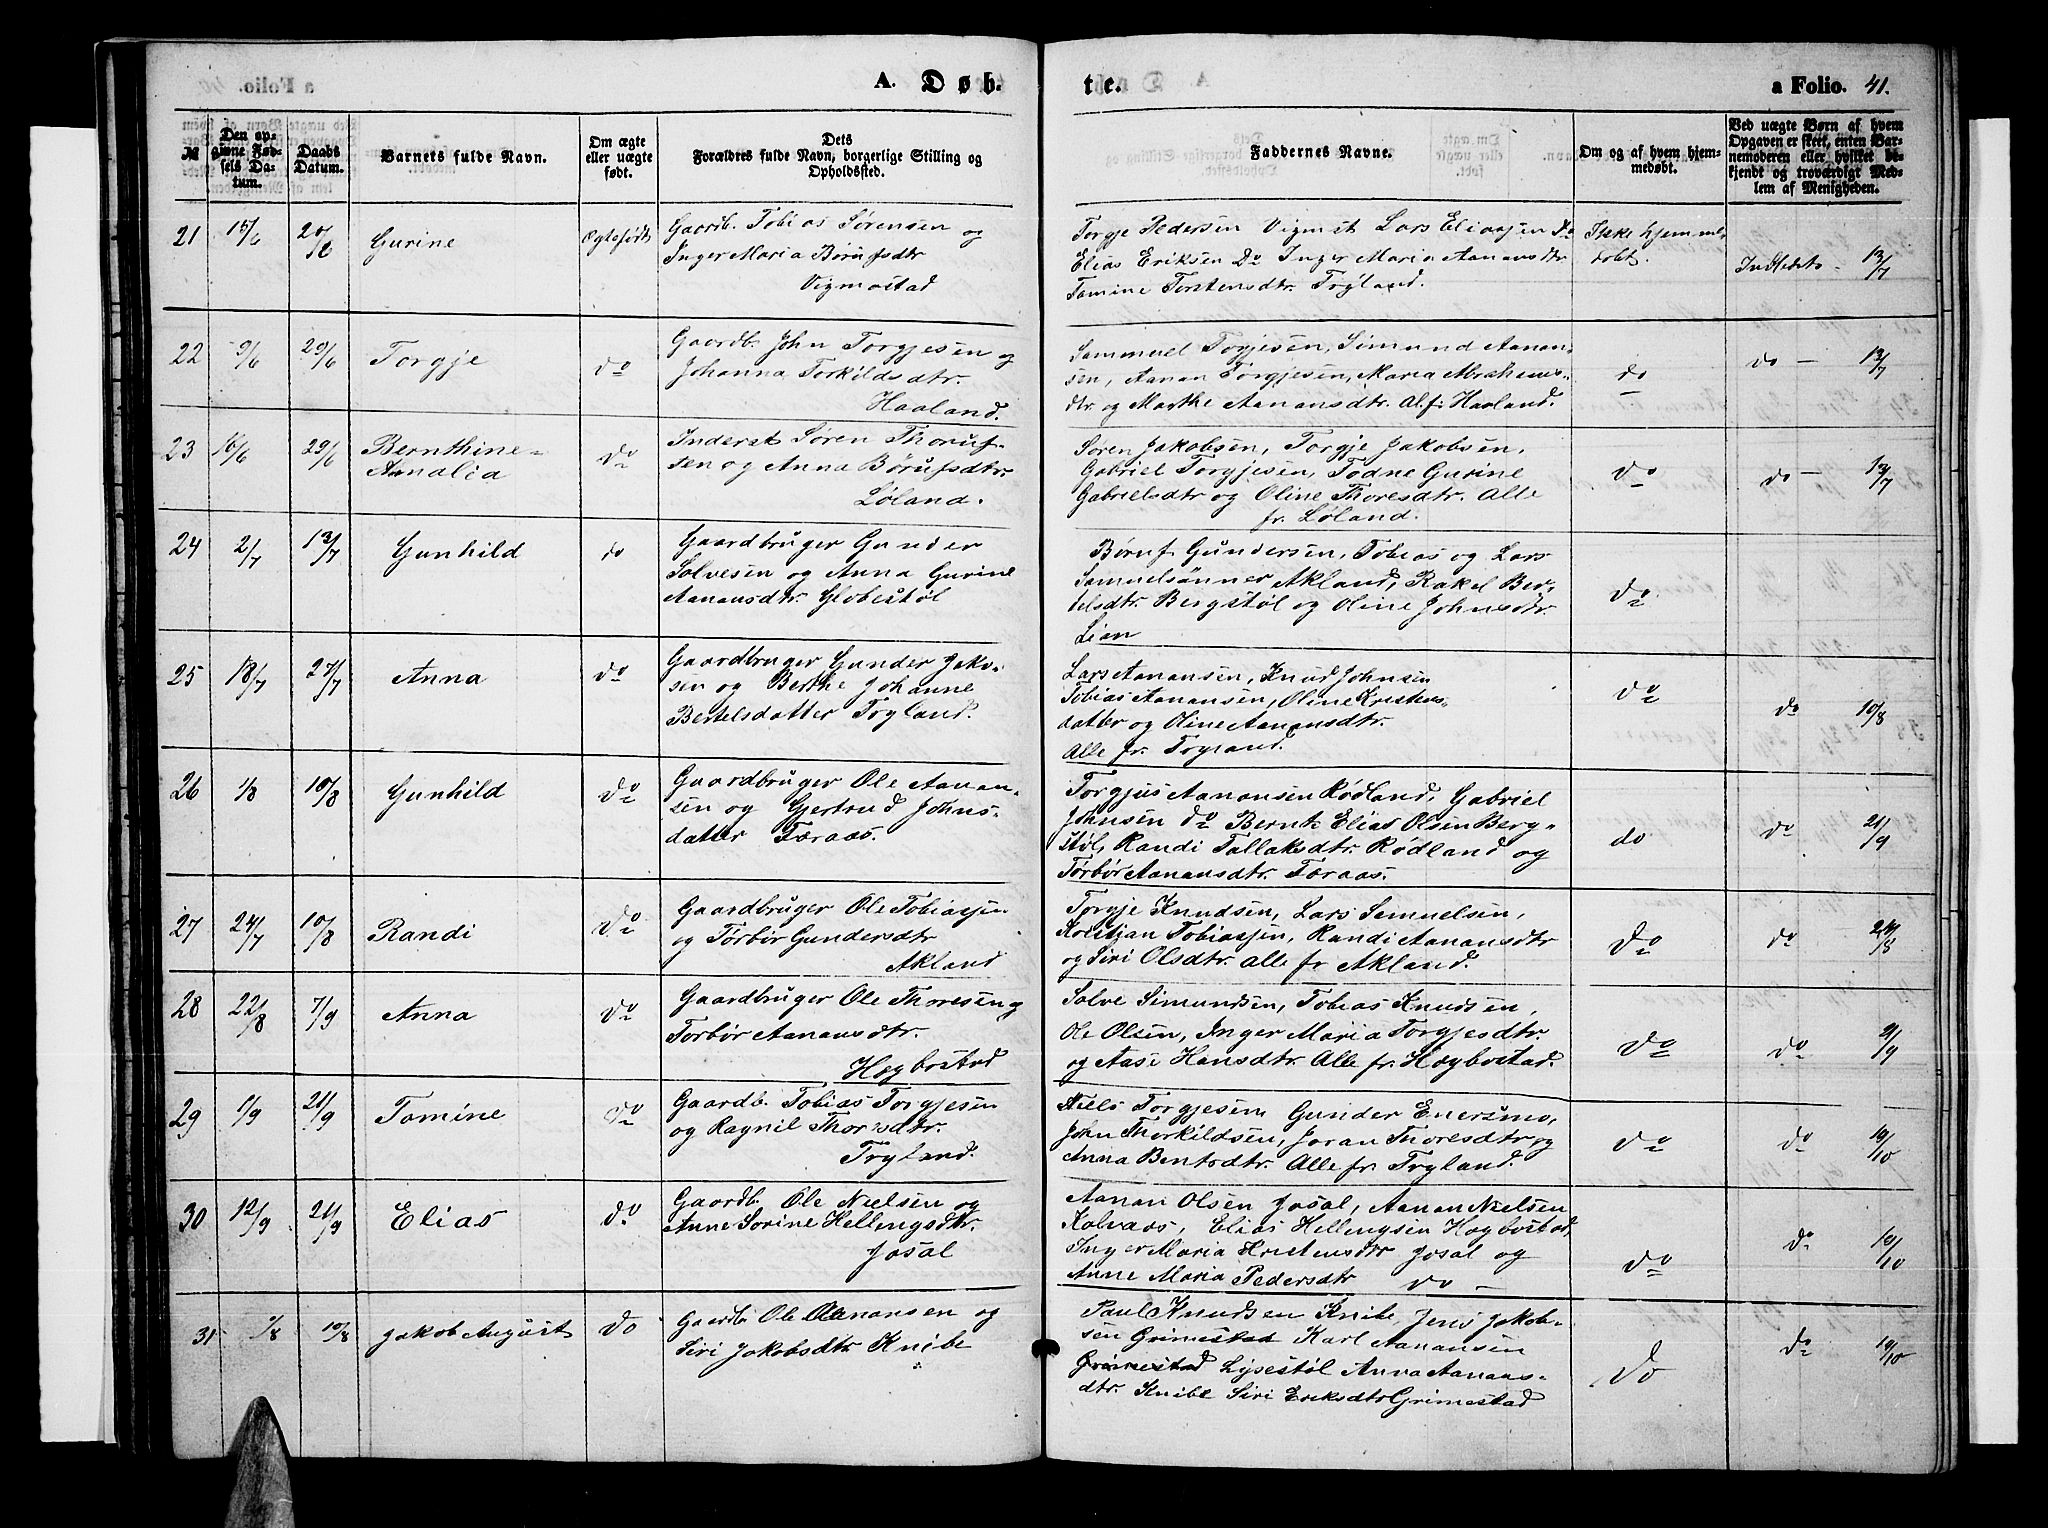 A. Døb.
№
Den opgivne Fødsels Datum.
Daabs Datum.
Barnets fulde Navn.
Om ægte eller uægte født.
Dets
Forældres fulde Navn, borgerlige Stilling og Opholdssted.
te.
a Folio. 41.
Faddernes Navne.
Om og af hvem hjemmedøbt.
Ved uægte Børn af hvem Opgaven er skeet, enten Barnemoderen eller hvilket bekjendt og troværdigt Medlem af Menigheden.
21 15/6 20/6 Gurine Ægtefødt
Gaardb. Tobias Sørensen og
Inger Maria Børufsdtr
Vigmostad
Torgje Pedersen Vigmst Lars Eliassen do
Elias Eriksen Do Inger Maria Aanansdtr
Tomine Torstensdtr. Tryland.
Ikke hjemme
døbt.
Indtedets - 13/7
22 9/6 29/6 Torgje do
Gaardb. John Torgjesen og
Johanna Torkildsdtr.
Haaland.
Sammuel Torgjesen, Simund Aanan-
sen, Aanan Torgjesen, Maria Abrahams-
dtr. og Marthe Aanansdtr. Al. fr. Haaland.
do
do - 13/7
23 16/6 29/6 Bernthine-
Amalia do
Inderst Søren Thoruf-
sen og Anna Børufsdtr
Løland.
Søren Jakobsen, Torgje Jakobsen,
Gabriel Torgjesen, Todne Gurine
Gabrielsdtr og Oline Thoresdtr. Alle
fr. Løland.
do
do - 13/7
24 2/7 13/7 Gunhild do
Gaardbruger Gunder
Salvesen og Anna Gurine
Aanansdtr. Globestøl
Børuf Gundersen, Tobias og Lars
Samuelsønner Akland, Rakel Ber-
telsdtr. Bergstøl og Oline Johnsdtr
Lian
do
25 18/7 27/7 Anna do
Gaardbruger Gunder Jako-
sen og Berthe Johanne
Bertelsdatter Tryland.
Lars Aanansen, Knud Johnsen
Tobias Aanansen, Oline Kristens-
datter og Oline Aanansdtr.
Alle fr. Tryland.
do
do 10/8
26 1/8 10/8 Gunhild do
Gaardbruger Ole Aanan-
sen og Gjertrud Johns-
datter Færaas.
Torgjus Aanansen Rødland, Gabriel
Johnsen do Bernt Elias Olsen Berg-
støl, Randi Tallaksdtr. Rødland og
Torbør Aanansdtr. Færaas.
do
do 21/9
27 24/7 10/8 Randi do
Gaardbruger Ole Tobiassen
og Torbør Gundersdtr
Akland
Torgje Knudsen, Lars Samuelsen,
Kristjan Tobiassen, Randi Aanansdtr
og Siri Olsdtr. alle fr Akland.
do
do 24/8
28 22/8 7/9 Anna do
Gaardbruger Ole Thoresen og
Torbør Aanansdtr.
Høgbostad
Salve Simundsen, Tobias Knudsen,
Ole Olsen, Inger Maria Torgjesdtr.
og Aase Hansdtr. Alle fr. Høgbostad.
do
do 21/9
29 1/9 21/9 Tomine do
Gaardb. Tobias Torgjesen
og Ragnil Thorsdtr.
Tryland.
Niels Torgjesen, Gunder Enersmo,
John Thorkildsen, Joran Thoresdtr og
Anna Bentsdtr. Alle fr. Tryland.
do
do 10/10
30 12/9 21/9 Elias do
Gaardb. Ole Nielsen og
Anne Sorine Hellengsdtr.
Josal
Aanan Olsen Josal, Aanan Nielsen
Kolvaas, Elias Hellengsen Høgbostad,
Inger Maria Kristensdtr Josal og
Anne Maria Pedersdtr do -
do
do 10/10
31 /8 10/8 Jakob August do
Gaardb. Ole Aanansen og
Siri Jakobsdtr. Knibe
Paul Knudsen Knibe, Jens Jakob-
sen Grimestad Karl Aanansen
Grimestad Lysestøl Anna Aanans-
dtr. Knibe Siri Eriksdtr Grimestad
do
do 10/10